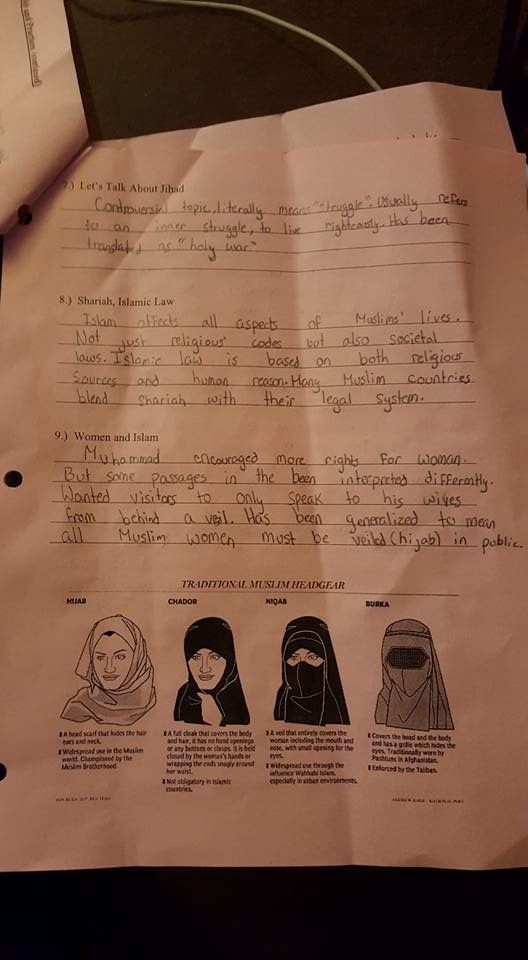 7.) Let's Talk About Jihad
Controversial topic, literally means "struggle". Usually refers
to an inner struggle, to live righteously. Has been
translated as "holy war"
8.) Shariah, Islamic Law
Islam affects all aspects of Muslims' lives.
Not just religious codes but also societal
laws. Islamic law is based on both religious
sources and human reason. Many Muslim countries
blend shariah with their legal system.
9.) Women and Islam
Muhammad encouraged more rights for woman.
But some passages in the been interpreted differently.
Wanted visitors to only speak to his wives
from behind a veil. Has been generalized to mean
all Muslim women must be veiled (hijab) in public.
TRADITIONAL MUSLIM HEADGEAR
HIJAB
A head scarf that hides the hair
ears and neck.
Widespread use in the Muslim
world. Championed by the
Muslim Brotherhood.
CHADOR
A full cloak that covers the body
and hair, it has no hand openings
or any buttons or clasps. It is held
closed by the woman's hands or
wrapping the ends snugly around
her waist.
Not obligatory in Islamic
countries.
NIQAB
A veil that entirely covers the
woman including the mouth and
nose, with small opening for the
eyes.
Widespread use through the
influence Wahhabi Islam,
especially in urban environments.
BURKA
Covers the head and the body
and has a grille which hides the
eyes. Traditionally worn by
Pashtuns in Afghanistan.
Enforced by the Taliban.
NATIONAL POST